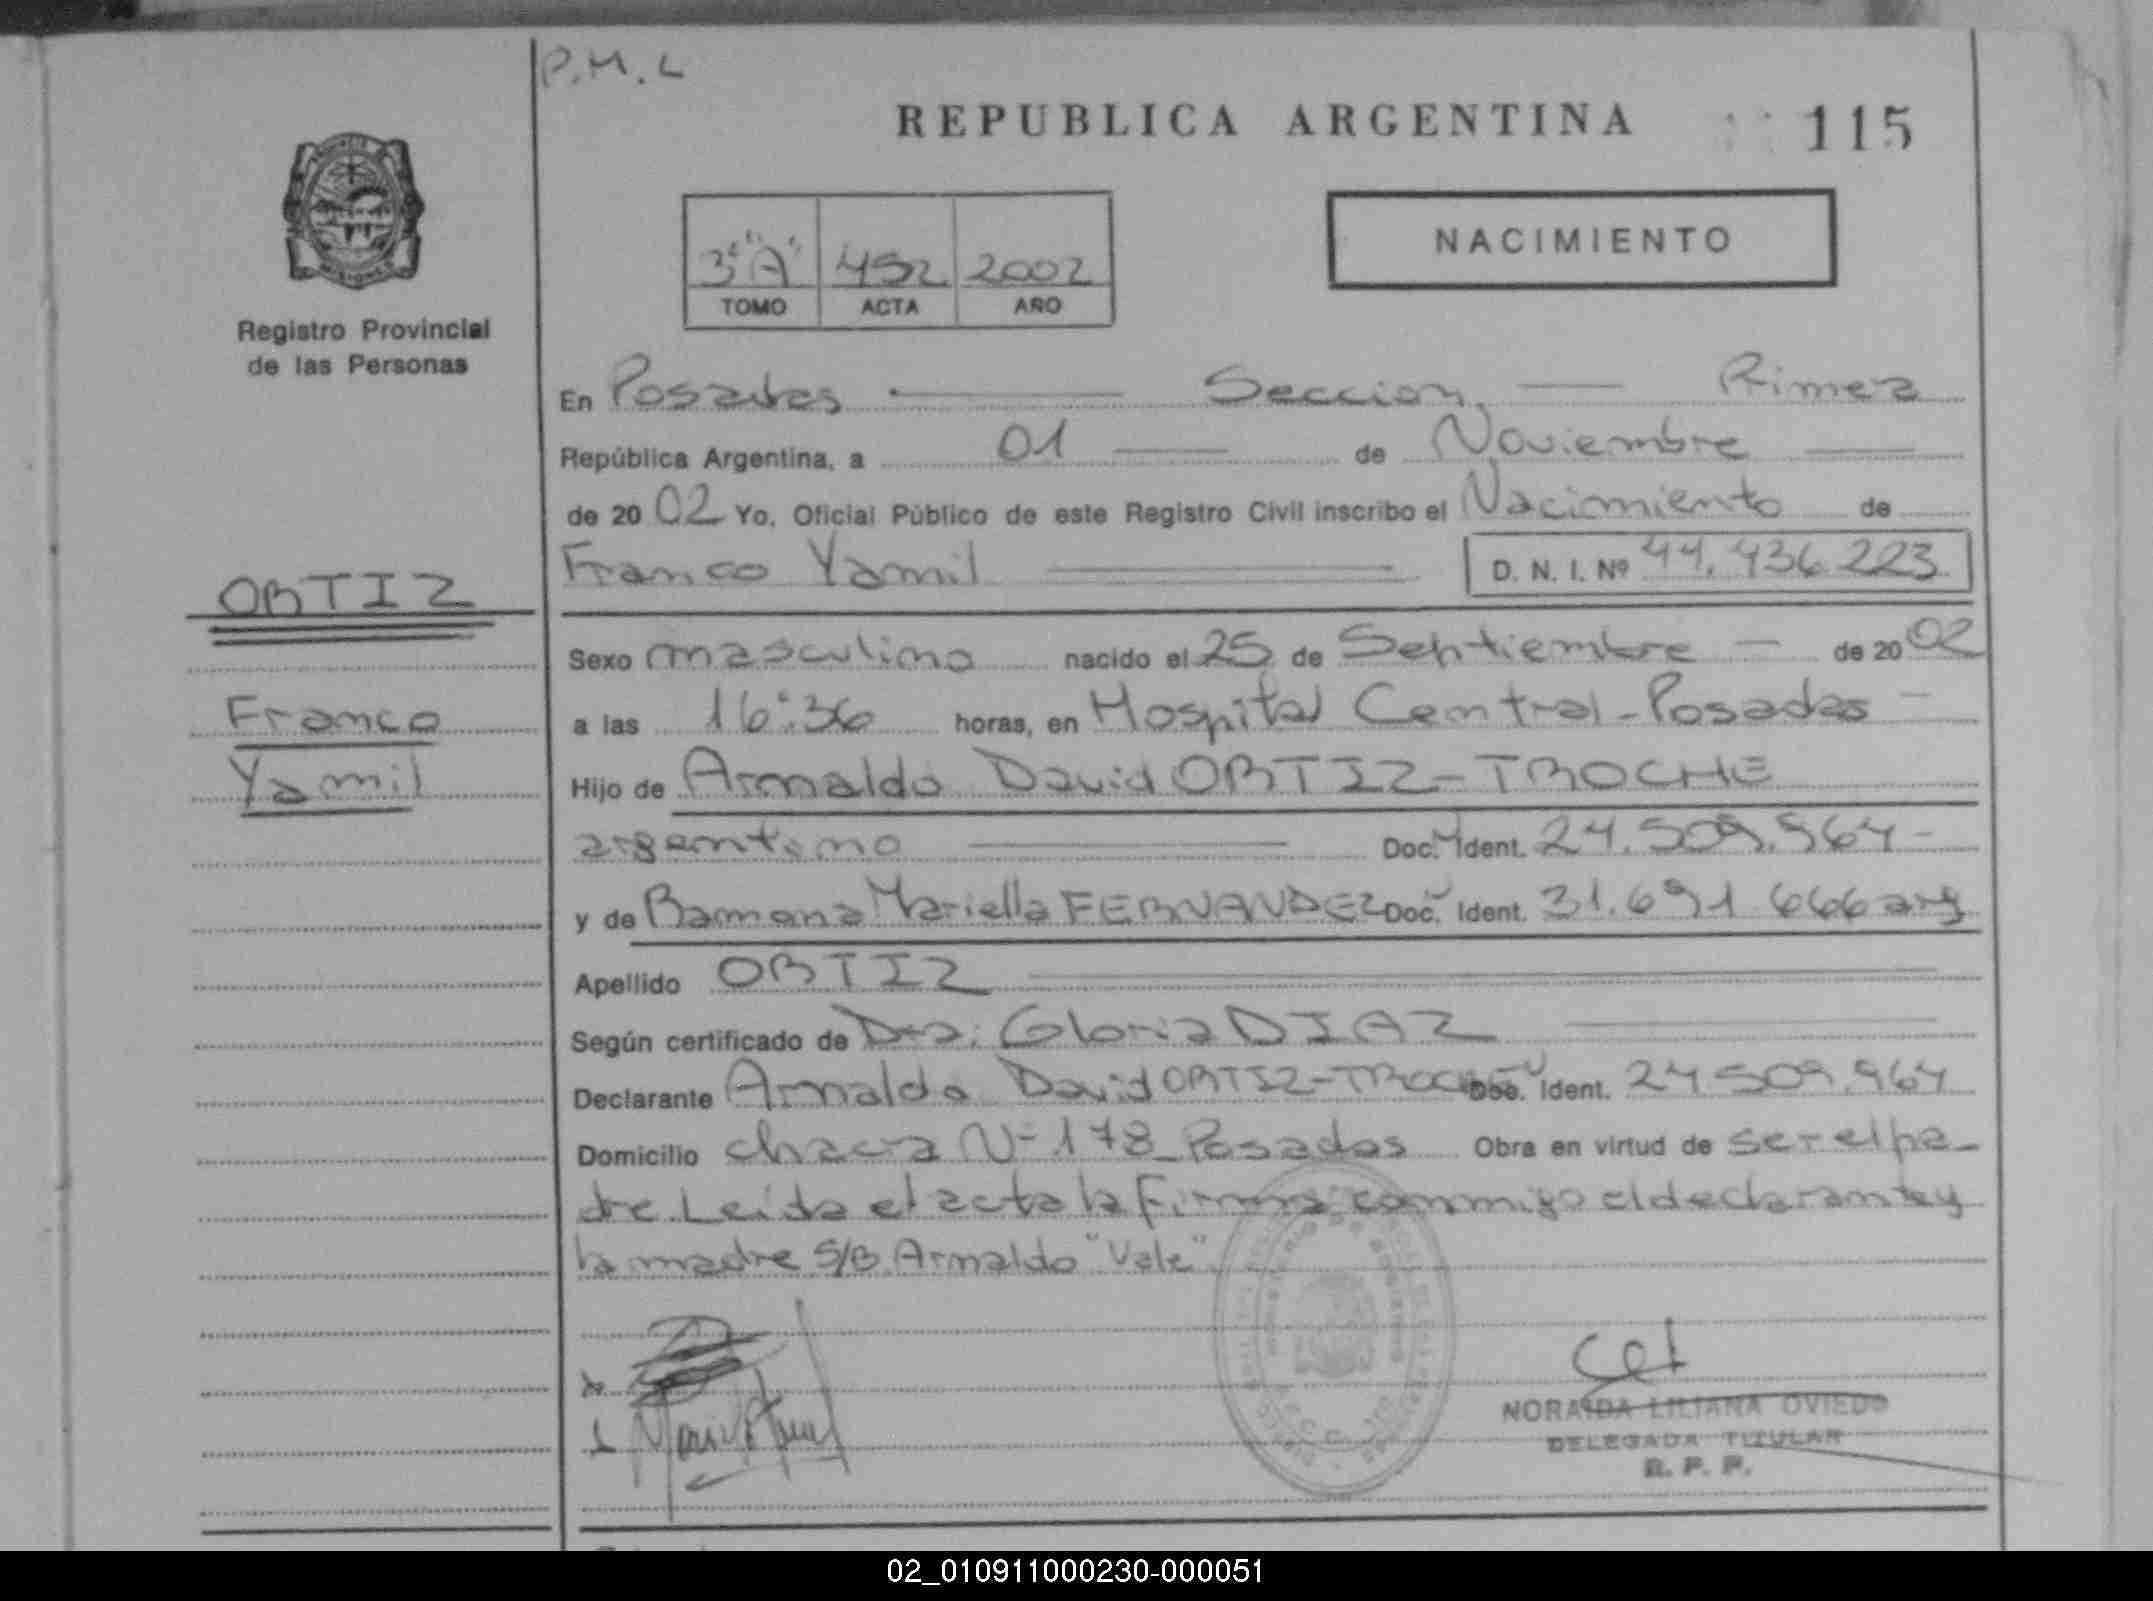 P.M.L
REPUBLICA ARGENTINA
115
3º "A" 452 2002
TOMO ACTA AÑO
NACIMIENTO
MISIONES
Registro Provincial
de las Personas
ORTIZ
Franco
Yamil
En Posadas Seccion Rimera
República Argentina, a 01 de Noviembre
de 2002 Yo, Oficial Público de este Registro Civil inscribo el Nacimiento de
Franco Yamil D. N. I. Nº 44.436.223
Sexo masculino nacido el 25 de Septiembre de 2002
a las 16:36 horas, en Hospital Central-Posadas
Hijo de Arnaldo David ORTIZ-TROCHE
argentino Doc. Ident. 24.509.964
y de Ramona Mariella FERNANDEZ Doc. Ident. 31.691.666 arg
Apellido ORTIZ
Según certificado de Dra. Gloria DIAZ
Declarante Arnaldo David ORTIZ-TROCHE Doc. Ident. 24.509.964
Domicilio chacra Nº 178 Posadas Obra en virtud de ser el pa-
dre. Leida el acta la firma conmigo el declarante y
la madre S/B Arnaldo "Vale".
NORAIDA LILIANA OVIEDO
DELEGADA TITULAR
R. P. P.
02_010911000230-000051